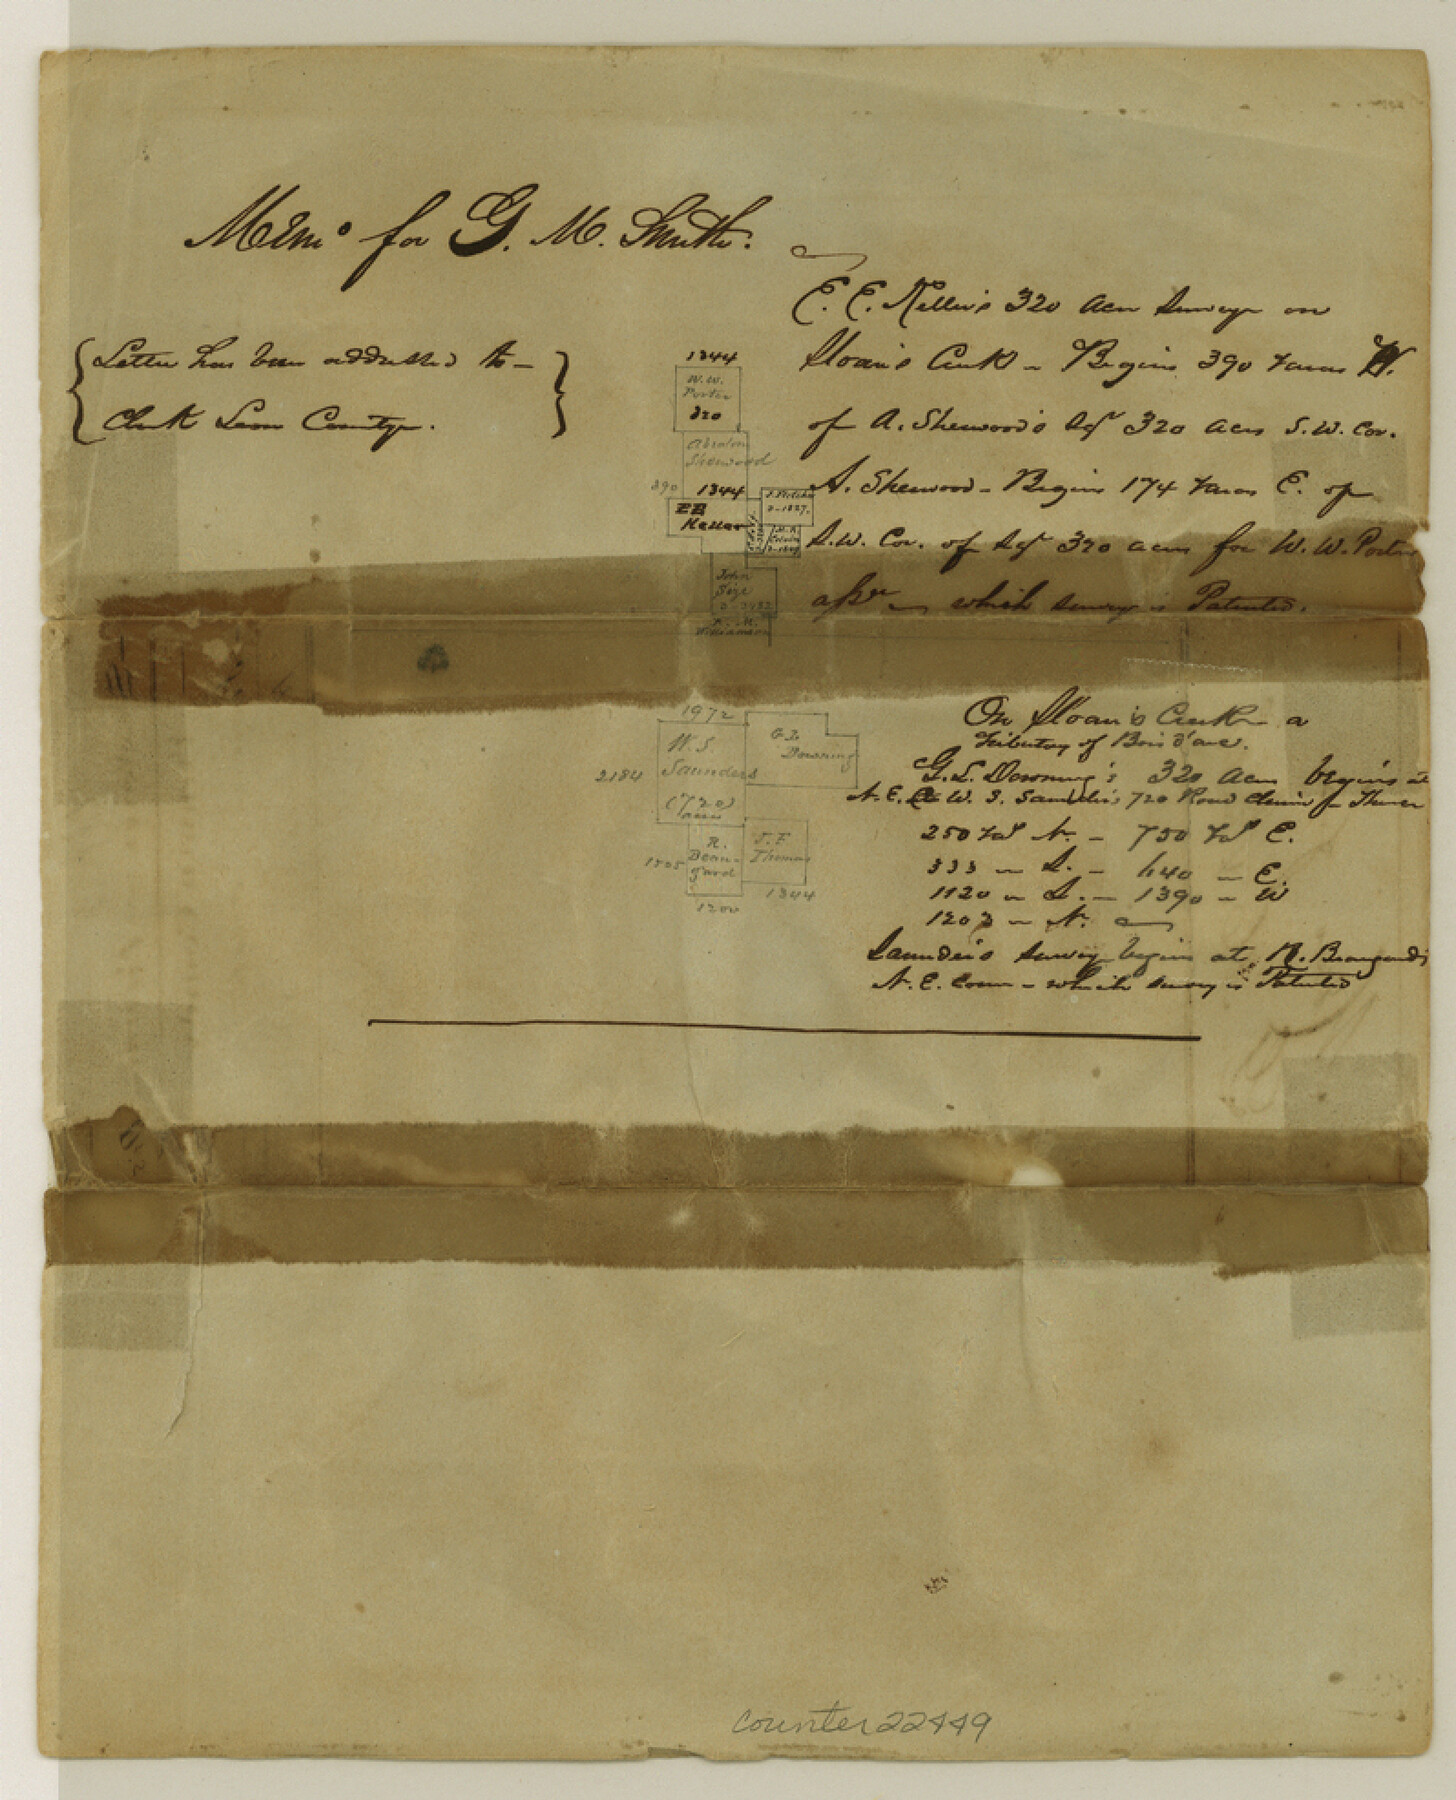 Mem° for G. M. Smith.
{ Letter has been addressed to –
Clerk Leon County. }
E. E. Keller's 320 acre survey on
Sloan's Creek – Begins 390 varas W.
of A. Sherwood's Sy 320 acres S.W. Cor.
A. Sherwood – Begins 174 varas E. of
S.W. Cor. of Sy 320 acres for W. W. Porter
assee – which survey is Patented.
1344
W. W.
Porter
320
Absalom
Sherwood
390
1344
EE
Keller
2-1827.
John
Size
Williamson
On Sloan's Creek a
tributary of Bois d'arc.
G. L. Downing's 320 acres begins at
N. E. W. S. Saunders's 720
250 vrs N. – 750 vrs E.
333 – S. – 640 – E.
1120 – S. – 1390 – W
1203 – N.
Saunders survey begins at R. Beaugard's
N. E. corner – which survey is Patented
1972
W. S.
Saunders
(720)
acres
2184
G L
Downing
R.
Beau-
gard
1505
1200
J. F
Thomas
1344
counter 22449